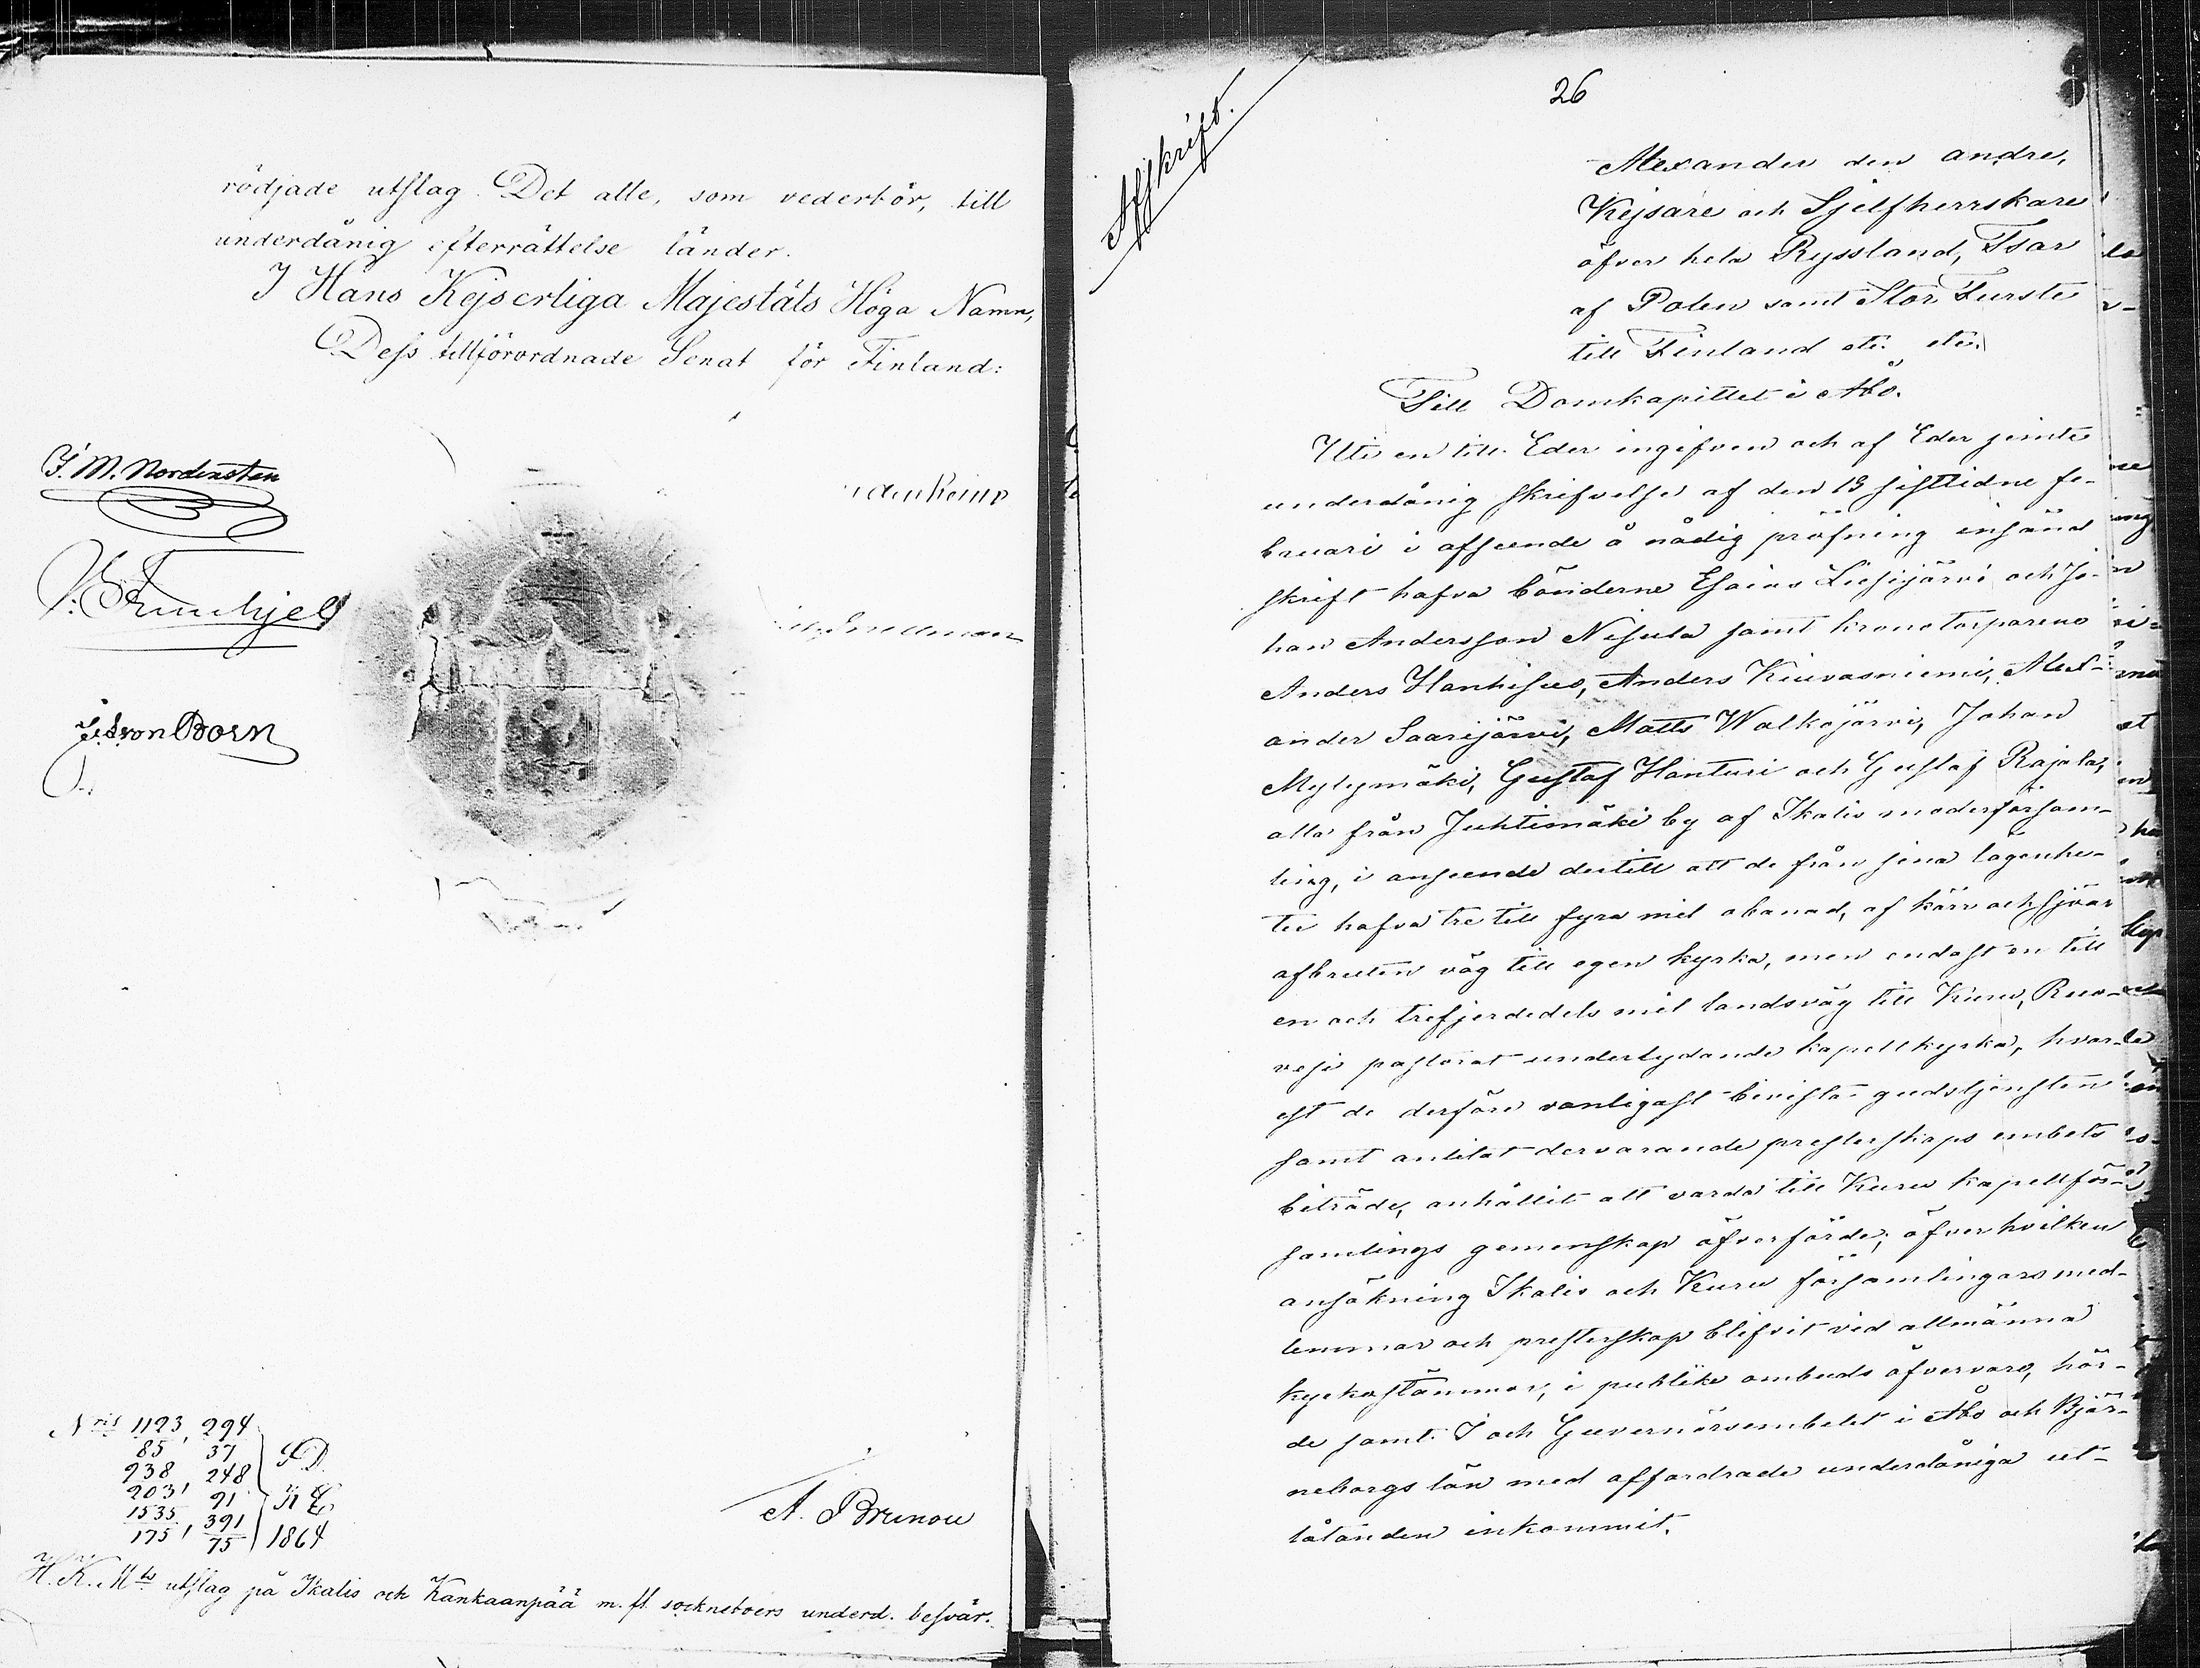 rödjade utslag. Det alle, som vederbör, till
underdånig efterrättelse länder.
I Hans Kejserliga Majestäts Höga Namn,
Dess tillförordnade Senat för Finland:
J. M. Nordensten
von Born
Nris 1123, 294
85, 37
938, 248 S.D.
203, 91
1535, 391 K.E.
175, 75 1864
A. Brunou
H. K. M:ts utslag på Ikalis och Kankaanpää m. fl. sockneboers underd. besvär.
Afskrift.
26
Alexander den andre,
Kejsare och Sjelfherrskare
öfver hela Ryssland, Tsar
af Polen samt Stor Furste
till Finland etc. etc.
Till Domkapitlet i Åbo.
Uti en till Eder ingifven och af Eder jemte
underdånig skrifvelse af den 13 sisttidne fe-
bruari i afseende å nådig pröfning insänd
skrift hafva bönderne Esaias Liesijärvi och Jo-
han Andersson Nisula samt kronotorparene
Anders Hanhisuo, Anders Kiuvasniemi, Alex-
ander Saarijärvi, Matts Walkajärvi, Johan
Mylymäki, Gustaf Hanturi och Gustaf Rajala,
alla från Juhtimäki by af Ikalis moderförsam-
ling, i anseende dertill att de från sina lägenhe-
ter hafva tre till fyra mil obanad, af kärr och sjöar
afbruten väg till egen kyrka, men endast en till
en och trefjerdedels mil landsväg till Kuru, Ruo-
vesi pastorat underlydande kapellkyrka, hvar-
est de derföre vanligast bivista gudstjensten
samt anlitat dervarande presterskaps embets
biträde, anhållit att varda till Kuru kapellför-
samlings gemenskap öfverförde; öfver hvilken
ansökning Ikalis och Kuru församlingars med-
lemmar och presterskap blifvit vid allmänna
kyrkostämmor, i publike ombuds öfvervaro, hör-
de samt I och Guvernörsembetet i Åbo och Björ-
neborgs län med affordrade underdåniga ut-
låtanden inkommit.